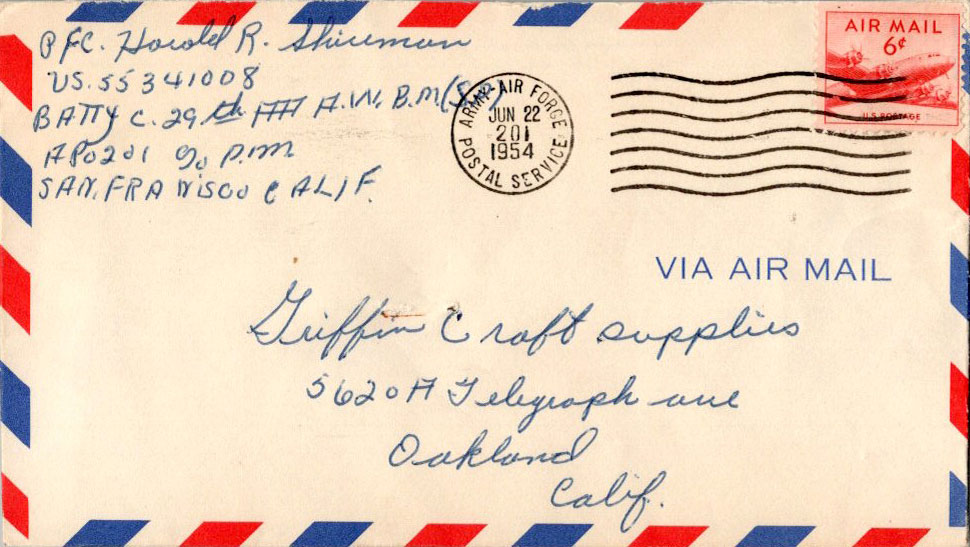 PFC. Harold R. Shireman
US. 55341008
BATTY C. 29th AAA A.W. B.N (SP)
APO 201 % P.M
SAN, FRANCISCO CALIF.
ARMY-AIR FORCE
JUN 22
201
1954
POSTAL SERVICE
AIR MAIL
6¢
U.S. POSTAGE
VIA AIR MAIL
Griffin Craft supplies
5620A Telegraph ave
Oakland
Calif.